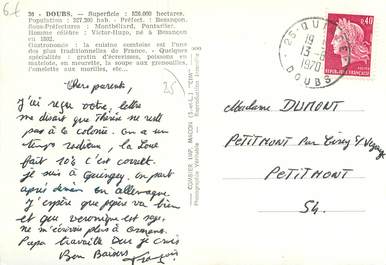 6€
20 - DOUBS. - Superficie : 528.000 hectares.
Population : 327.200 hab. - Préfect. : Besançon.
Sous-Préfectures : Montbéliard, Pontarlier.
Homme célèbre : Victor-Hugo, né à Besançon
en 1802.
Gastronomie : la cuisine comtoise est l'une
des plus traditionnelles de France. Quelques
spécialités : gratin d'écrevisses, poissons en
matelote, en meurette, la soupe aux grenouilles,
l'omelette aux morilles, etc...
25
Chers parents,
J'ai reçu votre lettre
me disant que Thérèse ne reste
pas à la colonie. on a un
temps radieux, la Loue
fait 10% c'est correct.
je suis à Quingey. on part
après demain en allemagne.
J'espère que pépère va bien
et que veronique est sage.
ne m'écrivez plus à ornans.
Papa travaille Dur je crois
Bon Baisers
François
COMBIER IMP. MACON (S.-et-L.) "CIM"
Photographie Véritable - Reproduction Interdite
25 - QUINGEY
19 H
13 - 8
1970
DOUBS
0,40
Madame DUMONT
PETITMONT Par Cirey s/ Vezouze
PETITMONT
54.